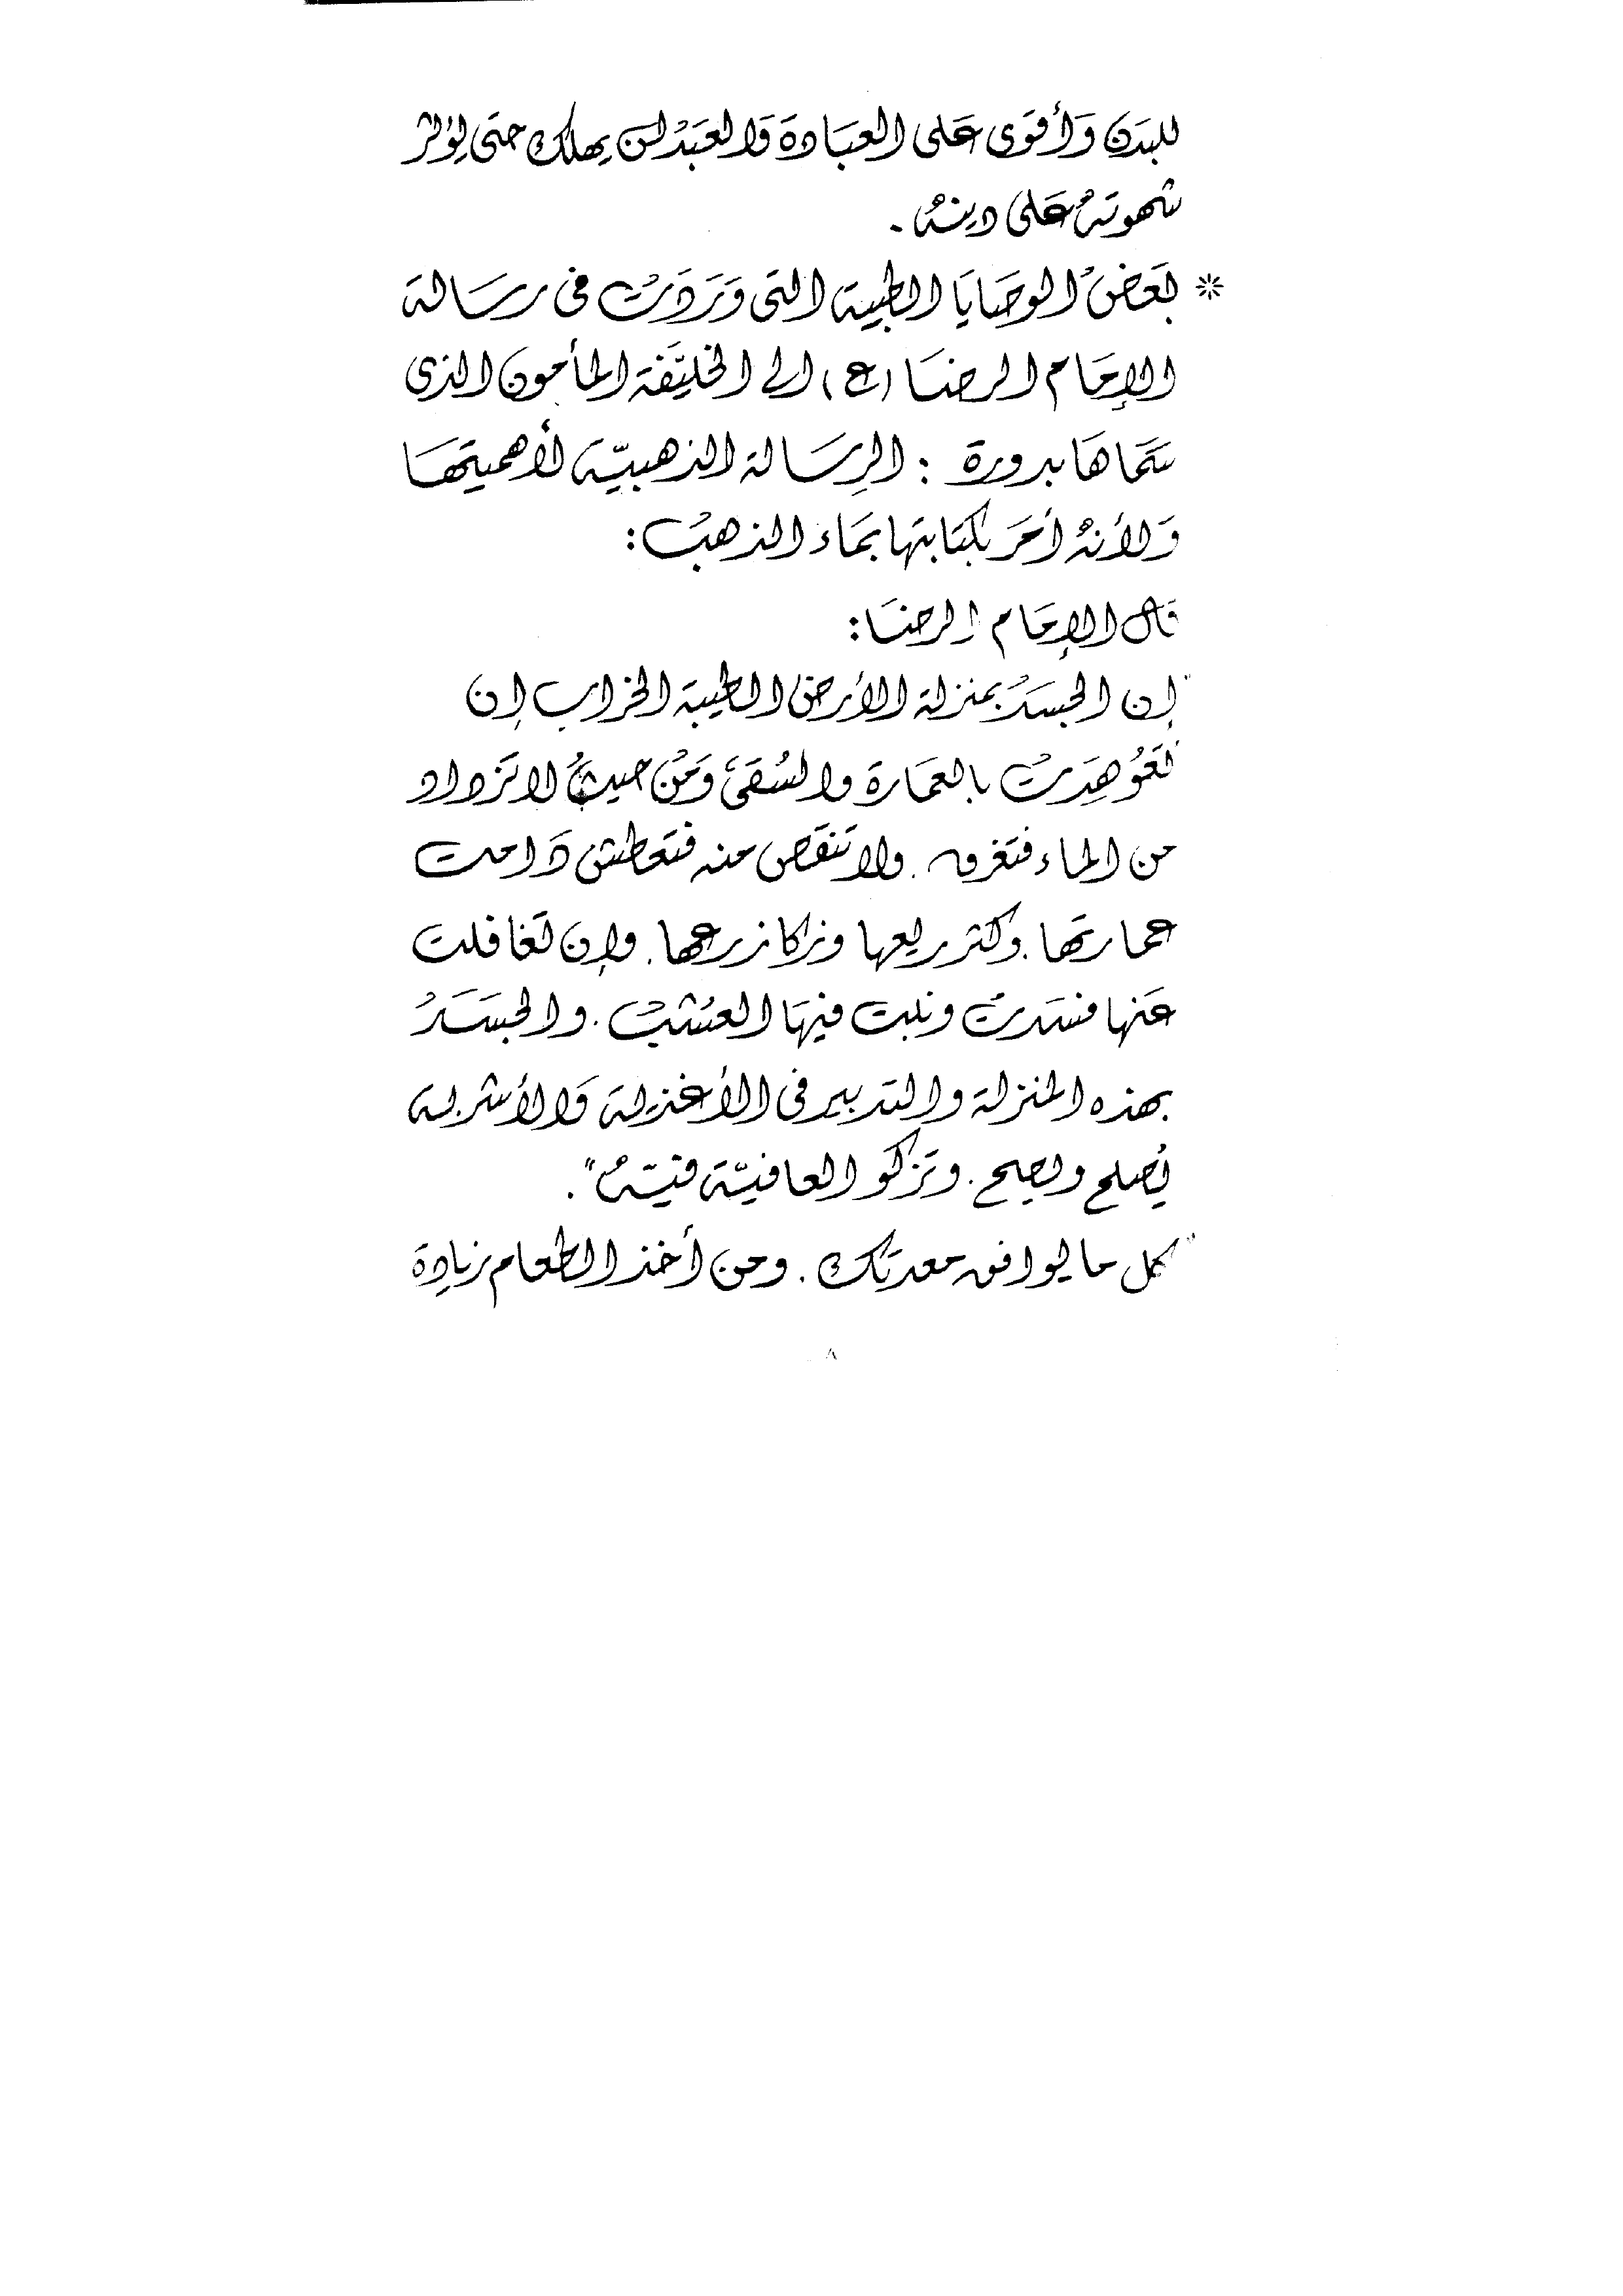 للبدَن وَأقوَى عَلى العبَادة وَالعبَدْ لن يهلك حتى يؤثر
شهوتهُ عَلى دينهُ .
* بَعَضْ الوصَايَا الطبية التى وَرَدَتْ فى رسَالة
الإمَام الرضَا (ع) الى الخليَفة المأمون الذى
سَمَاهَا بدورة : الرِسَالة الذهبيّة لأهميتهَا
وَلأنهُ أمَر بكتَابتها بمَاء الذهبْ :
قال الإمَام الرضَا :
"إن الجسدُ بمنزلة الأرض الطيبة الخراب إن
تعَوُهِدَتْ بالعمَارة والسُقَىَ وَمْن حيثُ لا تَزداد
من الماء فتغرق . ولا تنقَص منه فتعطش دَامت
عمارتها . وكثر ريعها وزكا زرعها . وإن تغَافلت
عَنها فسَدتْ ونبت فيهَا العشُبْ . والجسَدُ
بهذه المنزلة والتدبير فى الأغذية وَالأشربة
يُصلح ويصح . وتزكو العافيّة فيَهُ" .
"كل ما يوافق معدتك . ومن أخذ الطعام زيادة
٨